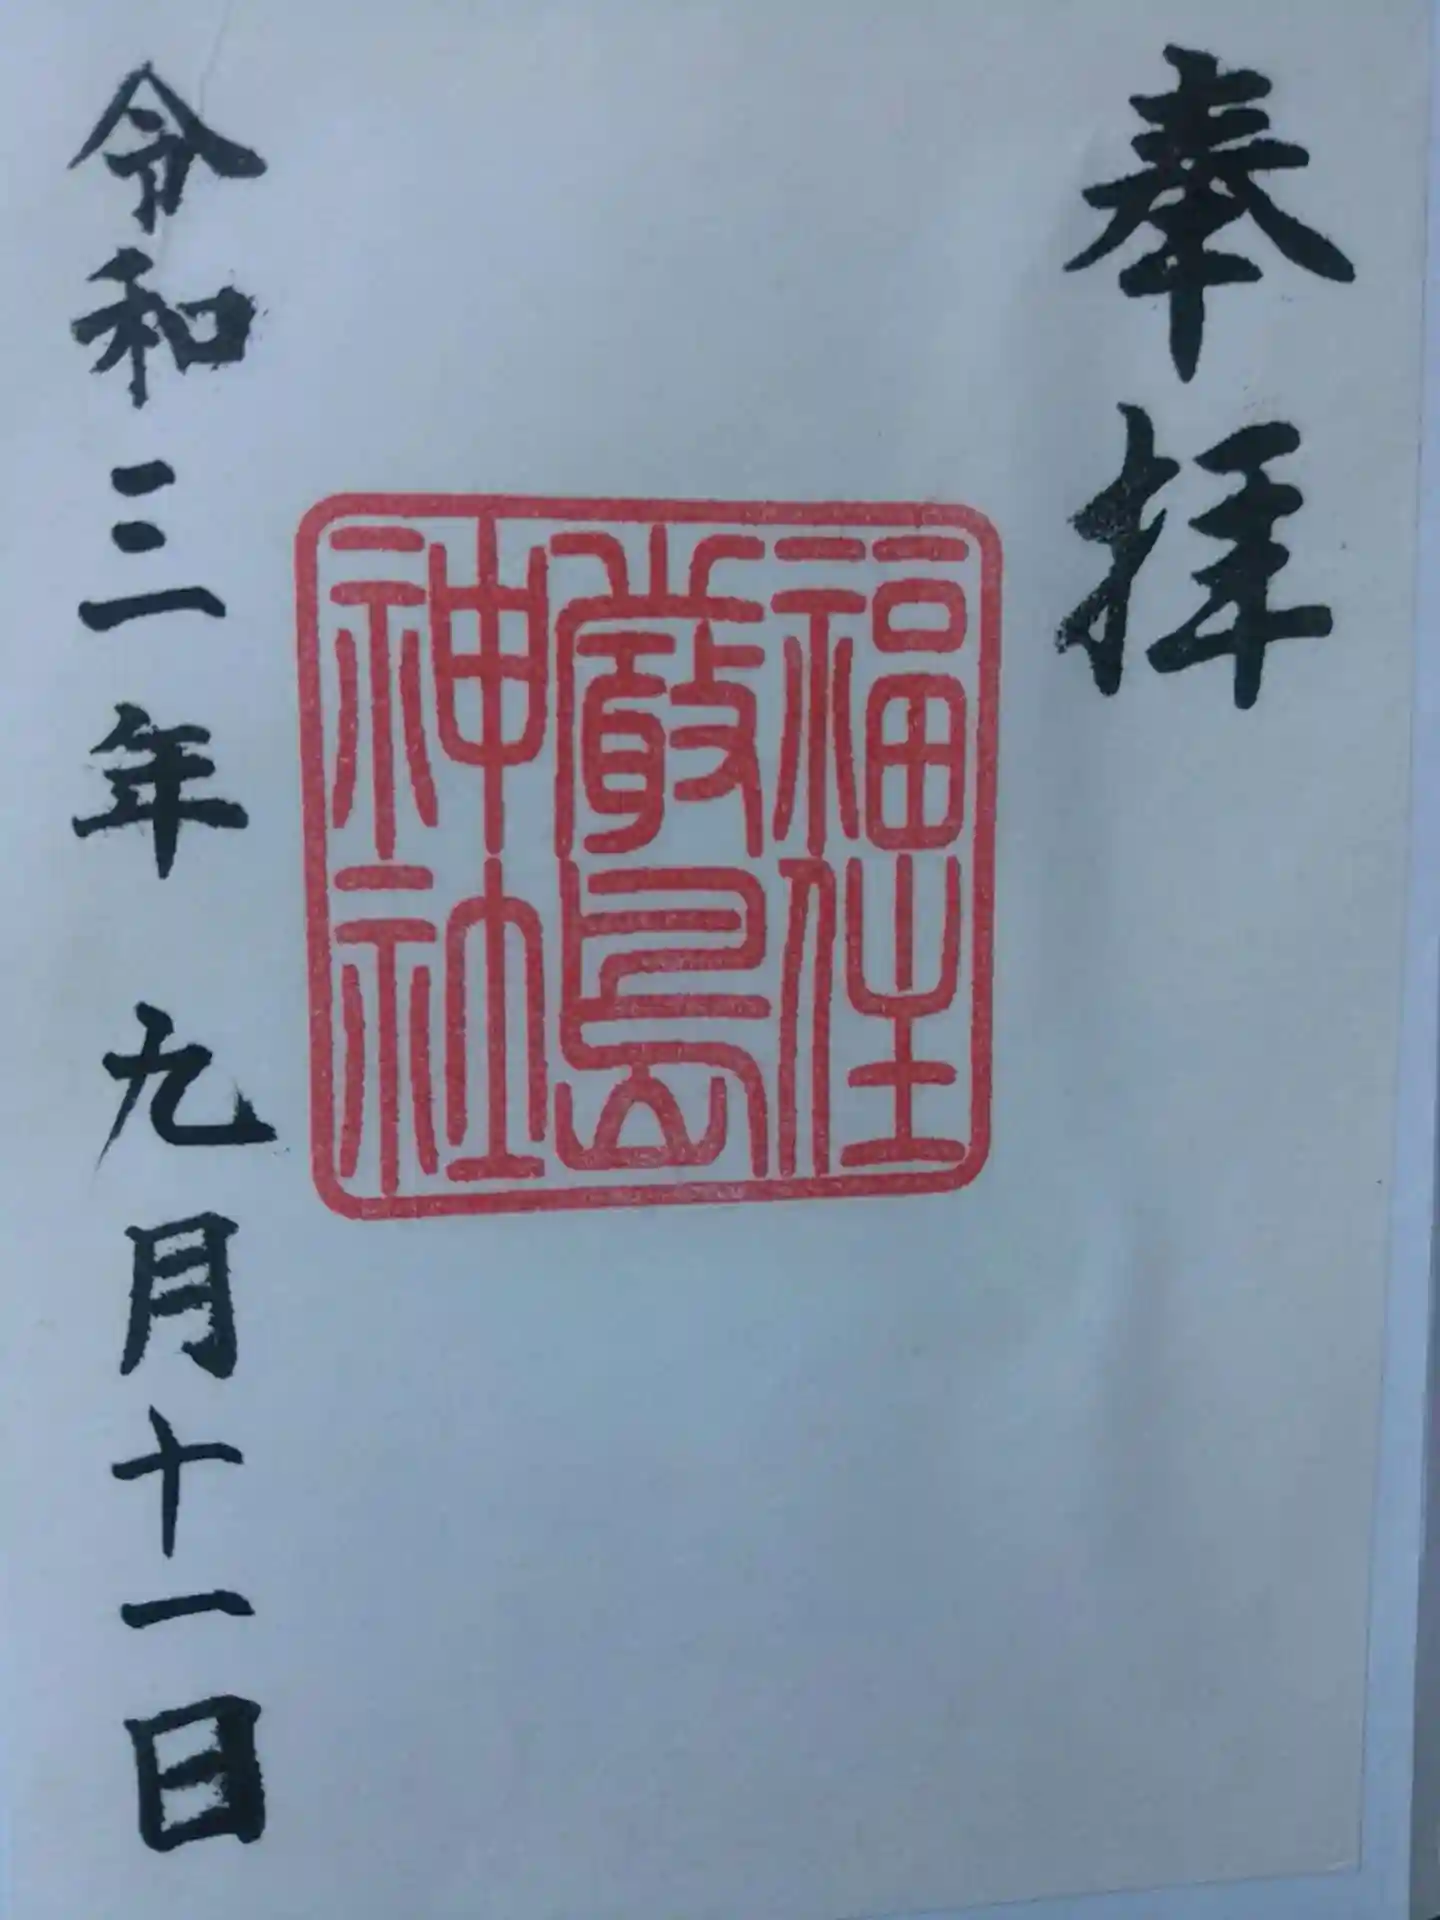 奉拝
福住
厳島
神社
令和三年九月十一日